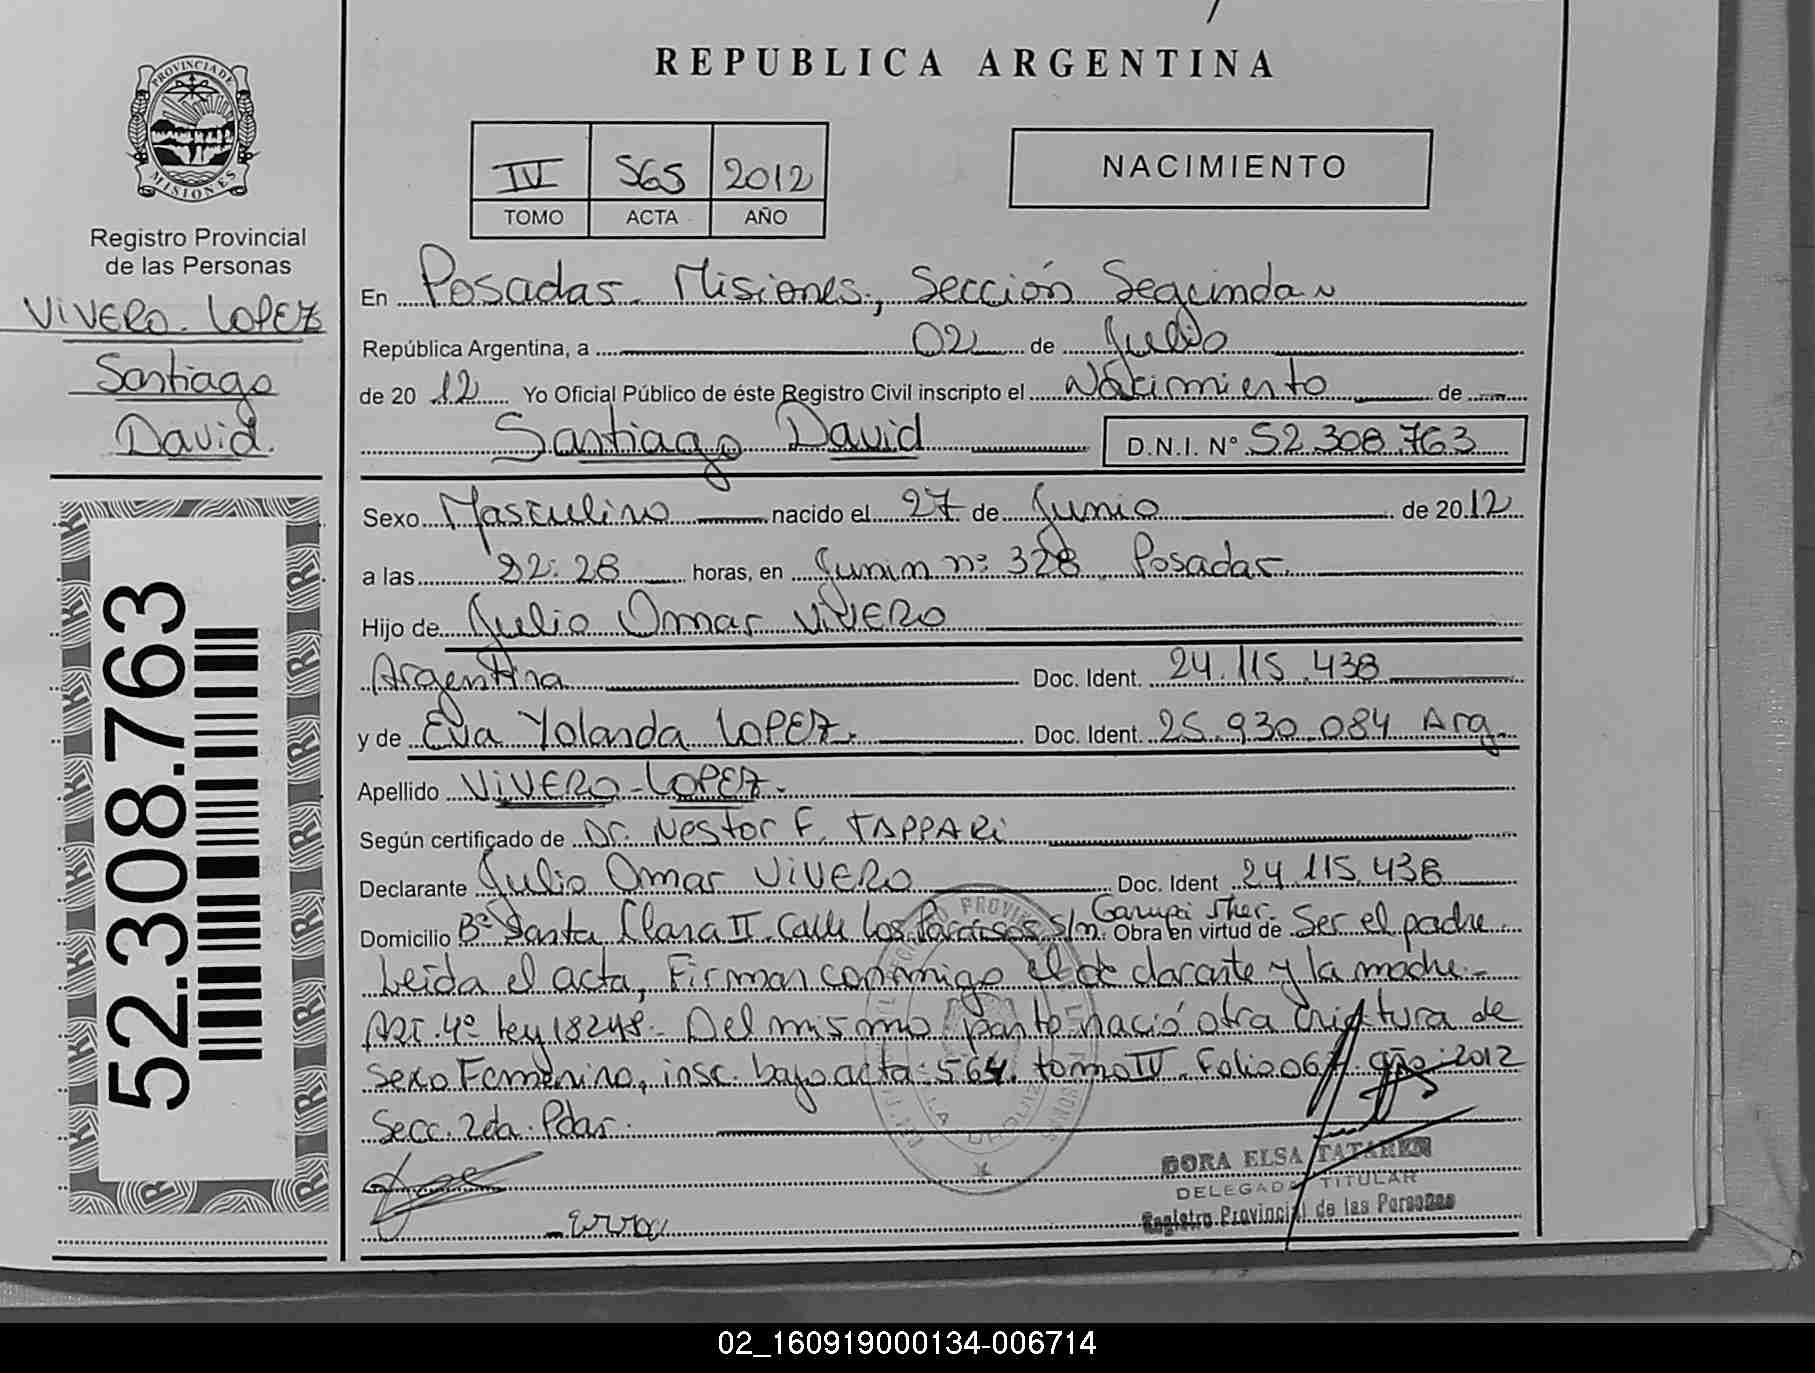 REPUBLICA ARGENTINA
PROVINCIA DE
MISIONES
Registro Provincial
de las Personas
VIVERO-LOPEZ
Santiago
David.
52.308.763
IV 565 2012
TOMO ACTA AÑO
NACIMIENTO
En Posadas. Misiones, Sección Segunda
República Argentina, a 02 de Julio
de 2012 Yo Oficial Público de éste Registro Civil inscripto el Nacimiento de
Santiago David D.N.I. N° 52.308.763
Sexo Masculino nacido el 27 de Junio de 2012
a las 22:28 horas, en Junin n: 328 Posadas.
Hijo de Julio Omar VIVERO
Argentina Doc. Ident. 24.115.438
y de Eva Yolanda LOPEZ. Doc. Ident. 25.930.084 Arg.
Apellido VIVERO-LOPEZ.
Según certificado de Dr. Nestor F. TAPPARI
Declarante Julio Omar VIVERO Doc. Ident 24.115.438
Domicilio B° Santa Clara II. Calle Los Paraisos s/n. Garupá Obra en virtud de Ser el padre.
Leida el acta, Firman conmigo el declarante y la madre.-
Art. 4° Ley 18248.- Del mismo parto nació otra criatura de
sexo Femenino, insc. bajo acta: 564. tomo IV. Folio 067. año: 2012
Secc. 2da. Pdas.
DORA ELSA
DELEGADA TITULAR
Registro Provincial de las Personas
02_160919000134-006714